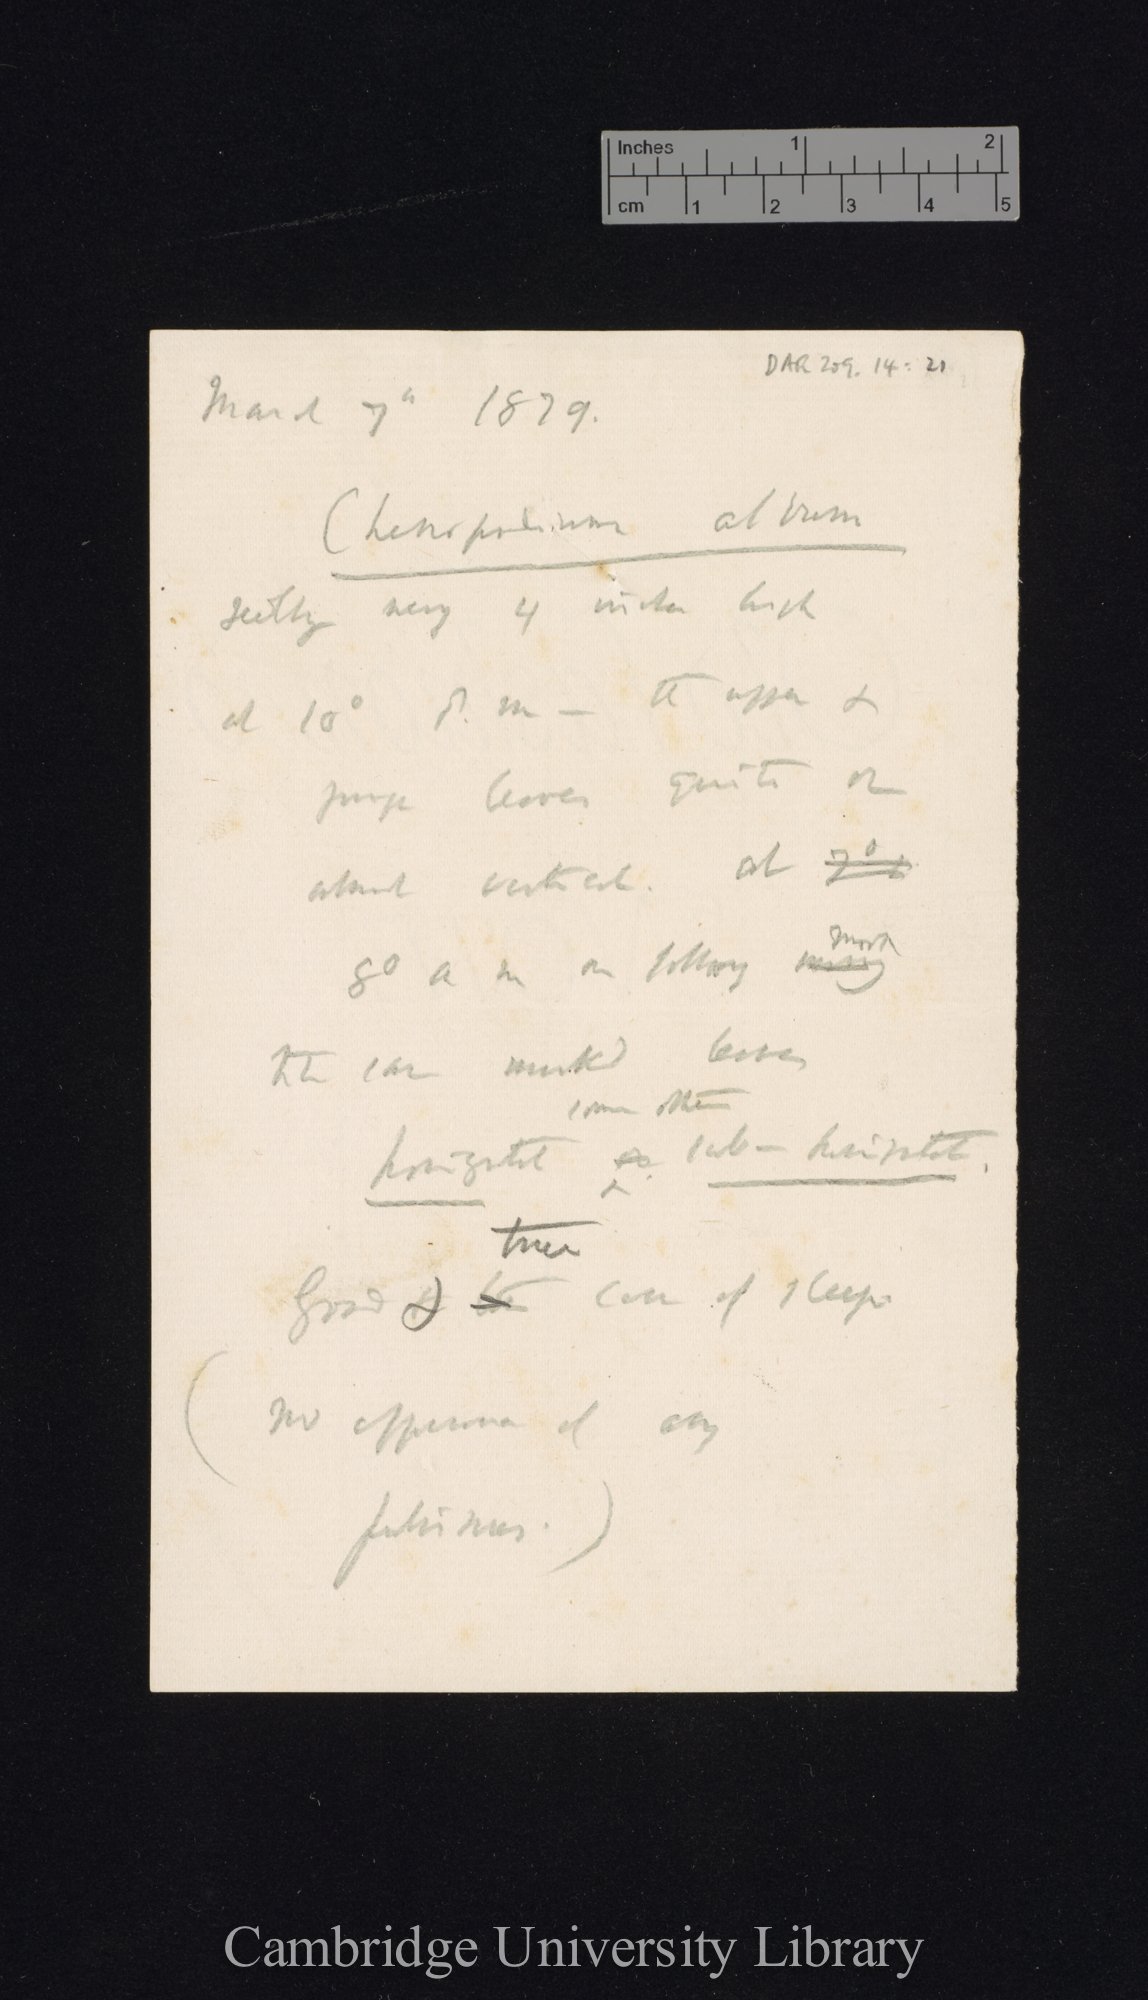 Inches 1 2
cm 1 2 3 4 5
DAR 209. 14: 21
March 7th 1879.
Chenopodium album
seedling nearly 4 inches high
at 10° P. m — the upper &
younger leaves quite or
almost vertical. at 7° &
8° a m on following morning morn
the same marked leaves
some others
horizontal & sub-horizontal.
true
Good & case of sleep
(No appearance of any
pulvinus.)
Cambridge University Library